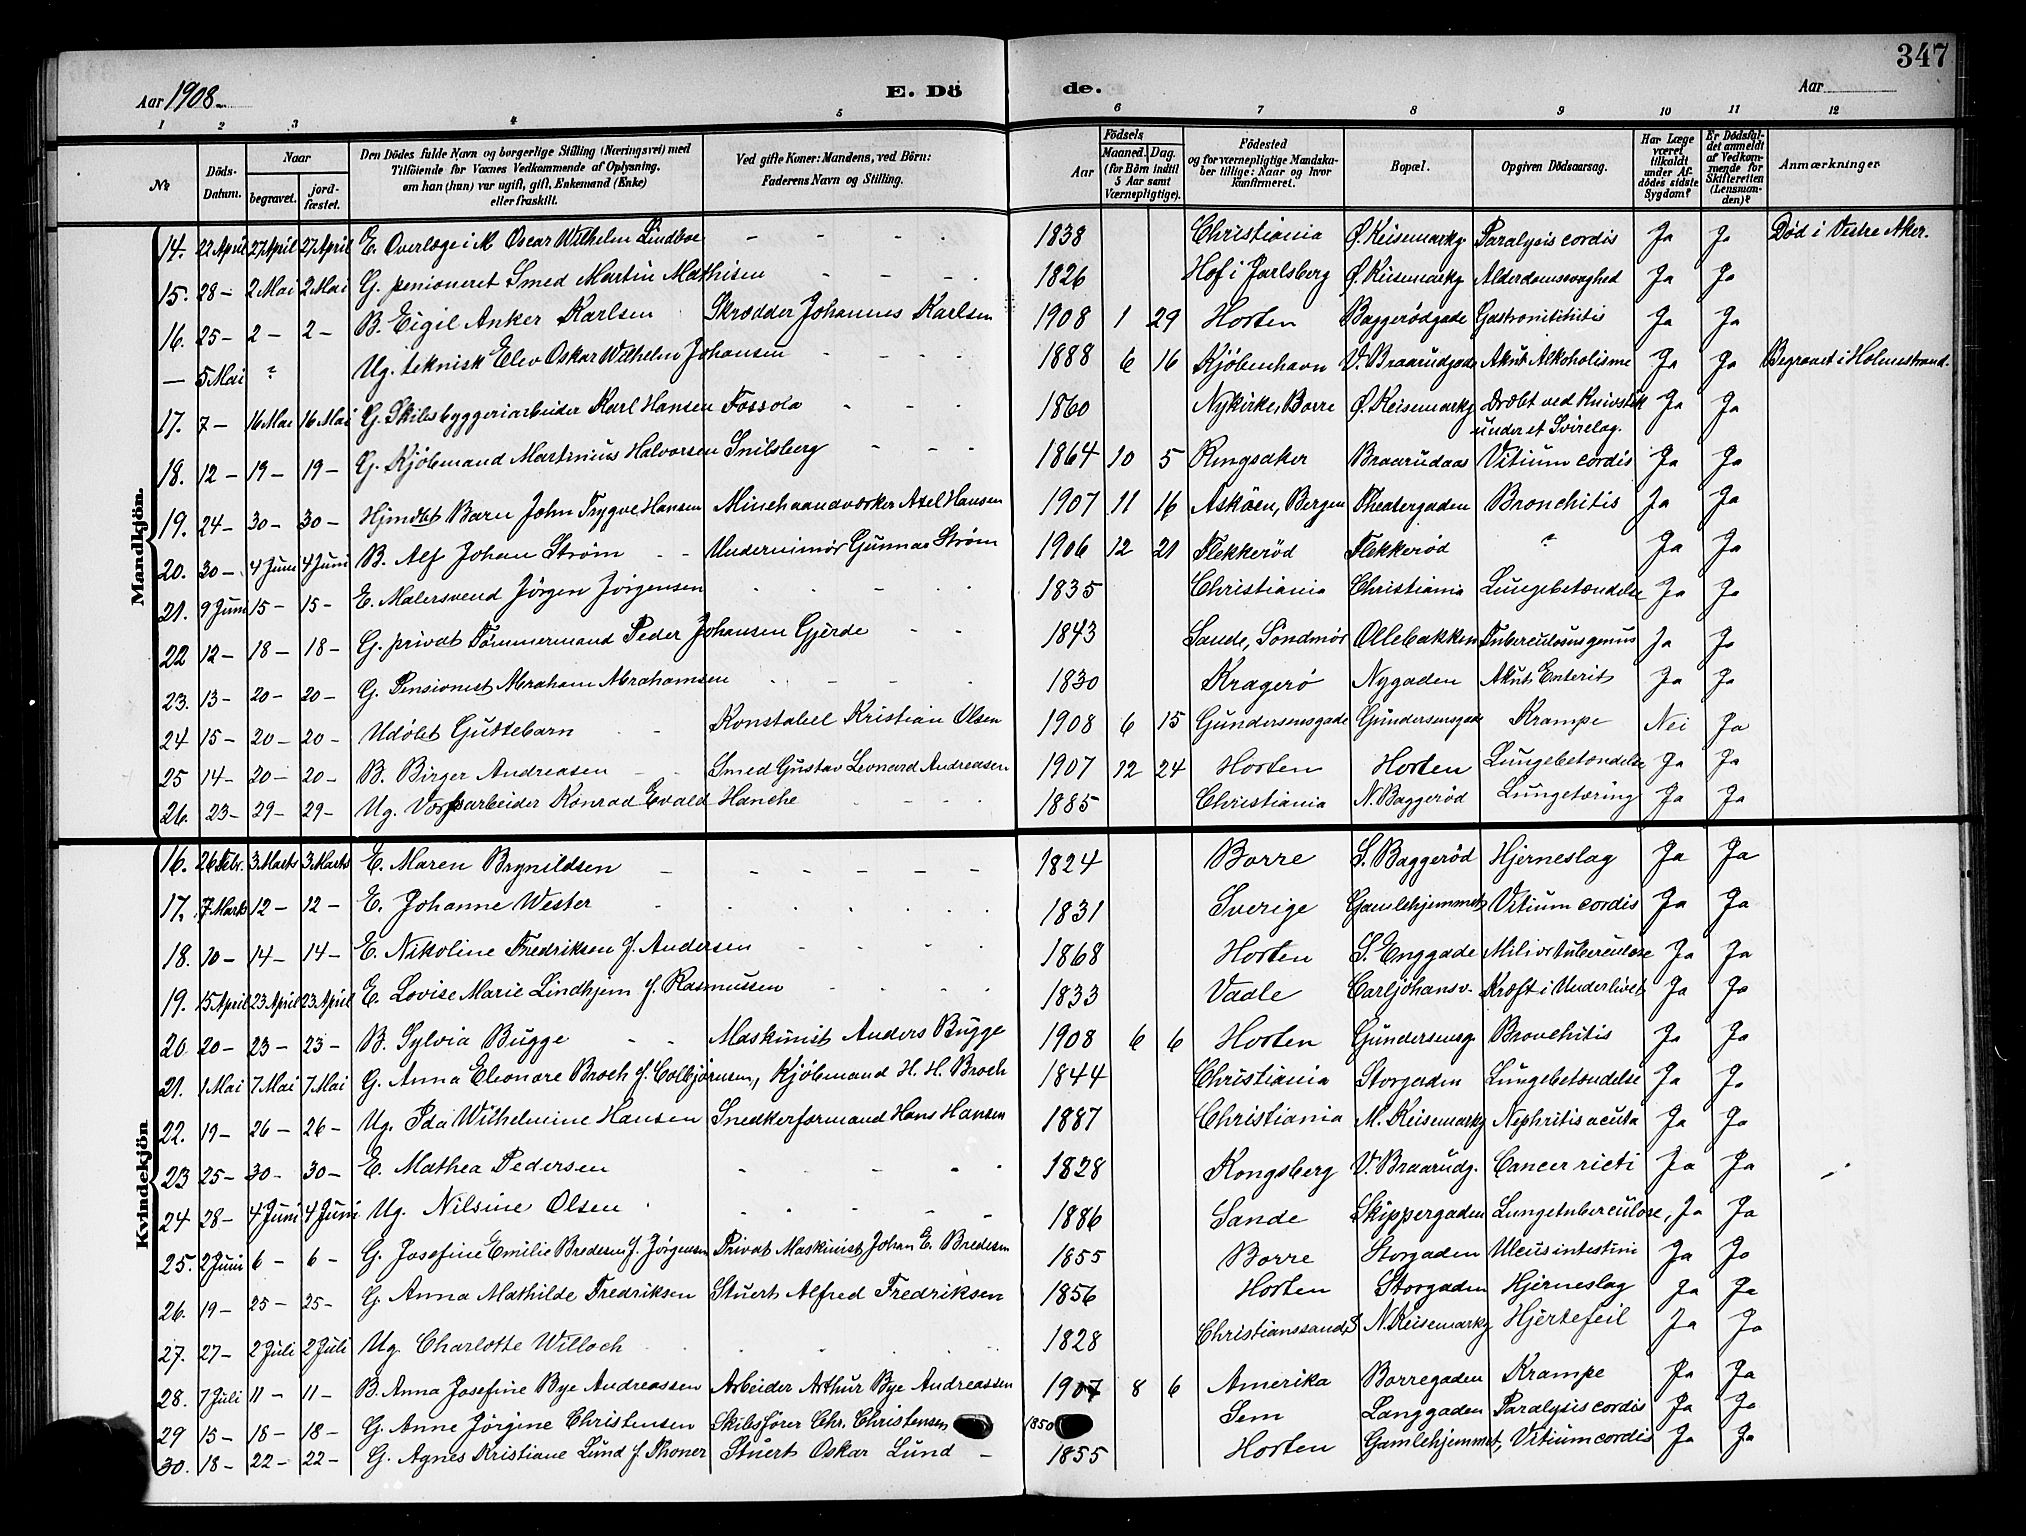 347
Aar 1908. E. Dö de. Aar
1 2 3 4 5 6 7 8 9 10 11 12
№ Döds-Datum. Naar begravet. jord-fæstet. Den Dödes fulde Navn og borgerlige Stilling (Næringsvei) med Tilföiende for Voxnes Vedkommende af Oplysning, om han (hun) var ugift, gift, Enkemand (Enke) eller fraskilt. Ved gifte Koner: Mandens, ved Börn: Faderens Navn og Stilling. Födsels Aar Maaned. Dag. (for Börn indtil 5 Aar samt Værnepligtige). Födested og for værnepligtige Mandskaber tillige: Naar og hvor konfirmeret. Bopæl. Opgiven Dödsaarsag. Har Læge været tilkaldt under Afdödes sidste Sygdom? Er Dödsfaldet anmeldt af Vedkommende for Skifteretten (Lensmanden)? Anmærkninger
Mandkjön.
14. 22 April 27 April 27 April E. Overlæge i M Oscar Wilhelm Lindboe - - - - 1838 Christiania Ø. Keisemarkg. Paralysis cordis Ja Ja Død i Vestre Aker.
15. 28 - 2 Mai 2 Mai G. pensioneret Smed Martin Mathisen - - - 1826 Hof i Jarlsberg Ø. Keisemarkg Alderdomssvaghed Ja Ja
16. 25 - 2 - 2 - B. Eigil Anker Karlsen Skrædder Johannes Karlsen 1908 1 29 Horten Baggerødgade Ja Ja
- 5 Mai ? Ug. teknisk Elev Oskar Wilhelm Johansen - - - - 1888 6 16 Kjøbenhavn V. Braarudgade Akut Alkoholisme Ja Ja Begravet i Holmestrand.
17. 7 - 16 Mai 16 Mai G. Skibsbyggeriarbeider Karl Hansen Fossola - - - 1860 Nykirke, Borre Ø. Keisemarkg Dræbt ved Knivstik Ja Ja
under et Svirelag.
18. 12 - 19 - 19 - G. Kjøbmand Martinius Halvorsen Snilsberg - - - 1864 10 5 Ringsaker Braarudaas Vitium cordis Ja Ja
19. 24 - 30 - 30 - Hjmdbt Barn John Trygve Hansen Minehaandværker Axel Hansen 1907 11 16 Askøen, Bergen Theatergaden Bronchitis Ja Ja
20. 30 - 4 Juni 4 Juni B. Alf Johan Strøm - - Gunnar Strøm 1906 12 21 Flekkerød Flekkerød ? Ja Ja
21. 9 Juni 15 - 15 - E. Malersvend Jørgen Jørgensen - - - 1835 Christiania Christiania Lungebetændelse Ja Ja
22 12 - 18 - 18 - G. privat Tømmermand Peder Johansen Gjerde - - 1843 Sande, Søndmør Ollebakken Ja Ja
23. 13 - 20 - 20 - G. Pensionist Abraham Abrahamsen - - - - 1830 Kragerø Nygaden Akut Enterit Ja Ja
24 15 - 20 - 20 - Udøbt Guttebarn - - Konstabel Kristian Olsen 1908 6 15 Gundersensgade Gundersensgade Krampe Nei Ja
25 14 - 20 - 20 - B. Birger Andreasen - - Smed Gustav Leonard Andreasen 1907 12 24 Horten Horten Lungebetændelse Ja Ja
26. 23 - 29 - 29 - Ug. Værftsarbeider Konrad Evald Hanche - - - - 1885 Christiania N. Baggerød Lungetæring Ja Ja
Kvindekjön
16. 26 Febr. 3 Marts 3 Marts E. Maren Brynildsen - - - - - - 1824 Borre S. Baggerød Hjerneslag Ja Ja
17. 7 Marts 12 - 12 - E. Johanne Wester - - - - - 1831 Sverige Gamlehjemmet Vitium cordis Ja Ja
18. 10 - 14 - 14 - E. Nikoline Fredriksen f. Andersen - - - - 1868 Horten S. Enggade Miliærtuberculose Ja Ja
19. 15 April 23 April 23 April E. Lovise Marie Lindhjem f. Rasmussen - - - - 1833 Vaale Carljohansv. Kræft i Underlivet Ja Ja
20 20 - 23 - 23 - B. Sylvia Bugge - - Maskinist Anders Bugge 1908 6 6 Horten Gundersensg. Bronchitis Ja Ja
21. 1 Mai 7 Mai 7 Mai G. Anna Eleonore Broch f. Colbjørnsen, Kjøbmand H. H. Broch 1844 Christiania Storgaden Lungebetændelse Ja Ja
22. 19 - 26 - 26 - Ug. Ida Wilhelmine Hansen Snedkerformand Hans Hansen 1887 Christiania M. Keisemarkg Nephritis acuta Ja Ja
23 25 - 30 - 30 - E. Mathea Pedersen - - - - - 1828 Kongsberg V. Braarudg. Cancer Ja Ja
24 28 - 4 Juni 4 Juni Ug. Nilsine Olsen - - - - - 1886 Sande Skippergaden Lungetuberculose, Ja Ja
25. 2 Juni 6 - 6 - G. Josefine Emilie Bredesen f. Jørgensen Privat Maskinist Johan E. Bredesen 1855 Borre Storgaden Ulcus intestini Ja Ja
26. 19 - 25 - 25 - G. Anna Mathilde Fredriksen Stuert Alfred Fredriksen 1856 Horten Storgaden Hjerneslag Ja Ja
27. 27 - 2 Juli 2 Juli Ug. Charlotte Willoch - - - - 1828 Christianssand S N. Keisemarkg Hjertefeil Ja Ja
28. 7 Juli 11 - 11 - B. Anna Josefine Bye Andreassen Arbeider Arthur Bye Andreassen 1907 8 6 Amerika Borregaden Krampe Ja Ja
29 15 - 18 - 18 - G. Anne Jørgine Christensen Skibsfører Chr. Christensen 1850 Sem Langgaden Paralysis cordis Ja Ja
30. 18 - 22 - 22 - G. Agnes Kristiane Lund f. Thoner Stuert Oskar Lund - 1855 Horten Gamlehjemmet, Vitium cordis Ja Ja